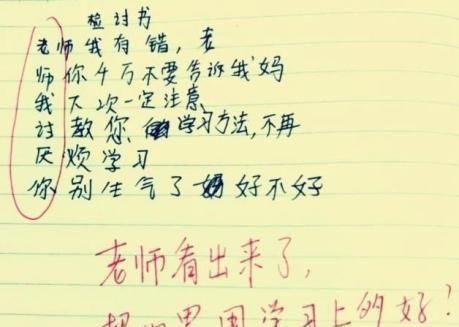 检讨书
老师我有错,老
师你千万不要告诉我妈
我下次一定注意
讨教您 学习方法,不再
厌烦学习
你别生气了 好不好
老师看出来了,
学习上的好!